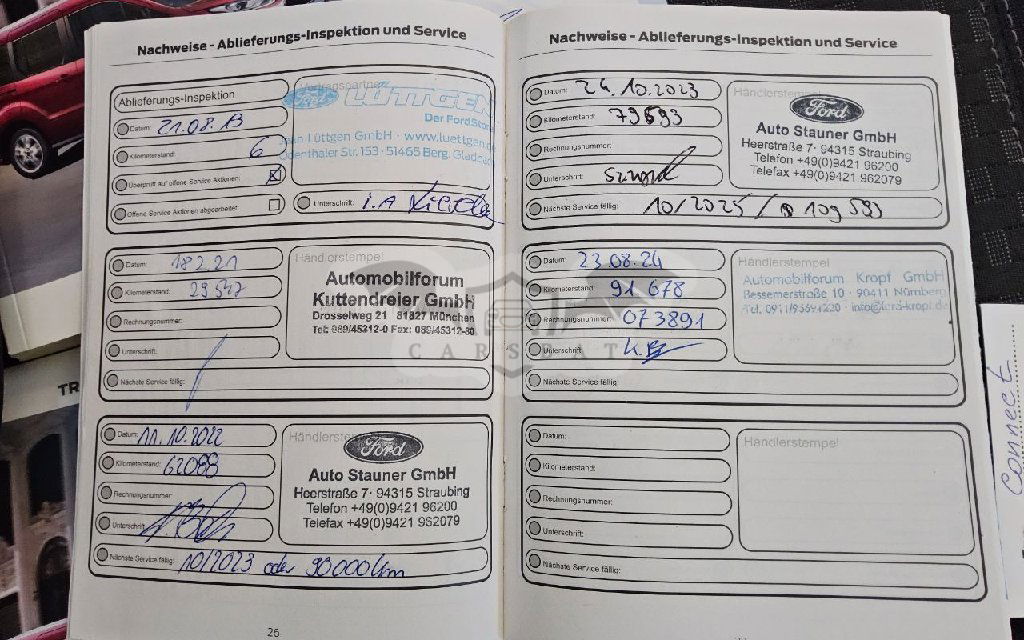 Nachweise - Ablieferungs-Inspektion und Service
Ablieferungs-Inspektion
Datum: 21.08.13
Kilometerstand: 6
Überprüft auf offene Service Aktionen:
Offene Service Aktionen abgearbeitet
Unterschrift: i.A
Ford LÜTTGEN
Der FordStore
Lüttgen GmbH · www.luettgen.de
Odenthaler Str. 153 · 51465 Berg. Gladbach
Datum: 18 2 21
Kilometerstand: 29 547
Rechnungsnummer:
Unterschrift:
Nächste Service fällig:
Händlerstempel
Automobilforum
Kuttendreier GmbH
Drosselweg 21 81827 München
Tel: 089/45312-0 Fax: 089/45312-80
Datum: 11.10.2022
Kilometerstand: 62088
Rechnungsnummer
Unterschrift
Nächste Service fällig: 10/2023 oder 90000km
Händlerstempel
Ford
Auto Stauner GmbH
Heerstraße 7 · 94315 Straubing
Telefon +49(0)9421 96200
Telefax +49(0)9421 962079
26
Nachweise - Ablieferungs-Inspektion und Service
Datum: 24.10.2023
Kilometerstand: 79593
Rechnungsnummer:
Unterschrift:
Nächste Service fällig: 10/2025 / 109593
Händlerstempel
Ford
Auto Stauner GmbH
Heerstraße 7 · 94315 Straubing
Telefon +49(0)9421 96200
Telefax +49(0)9421 962079
Datum: 23 08.24
Kilometerstand: 91 678
Rechnungsnummer: 073891
Unterschrift
Nächste Service fällig
Händlerstempel
Automobilforum Kropf GmbH
Bessemerstraße 10 · 90411 Nürnberg
Datum:
Kilometerstand:
Rechnungsnummer:
Unterschrift:
Nächste Service fällig:
Händlerstempel
CARSBAT
TR
Connect